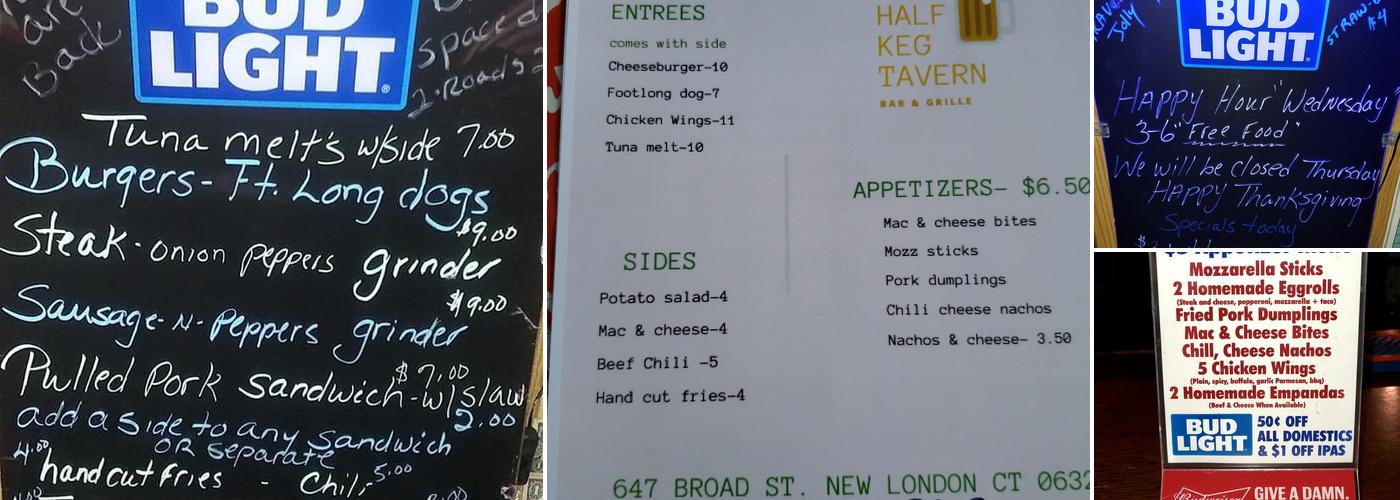 are
Back
BUD
LIGHT
spaced
2-Roads
Tuna melt's w/side 7.00
Burgers- Ft. Long dogs
$9.00
Steak- onion peppers grinder
$9.00
Sausage-N-Peppers grinder
$7.00
Pulled Pork sandwich-w/slaw
add a side to any sandwich 2.00
OR separate
4.00 hand cut fries - Chili 5.00
ENTREES
comes with side
Cheeseburger-10
Footlong dog-7
Chicken Wings-11
Tuna melt-10
SIDES
Potato salad-4
Mac & cheese-4
Beef Chili -5
Hand cut fries-4
HALF
KEG
TAVERN
BAR & GRILLE
APPETIZERS- $6.50
Mac & cheese bites
Mozz sticks
Pork dumplings
Chili cheese nachos
Nachos & cheese- 3.50
647 BROAD ST. NEW LONDON CT 0632
Jolly
BUD
LIGHT
STRAW-
$4
HAPPY Hour "Wednesday"
3-6 "Free Food"
We will be closed Thursday
HAPPY Thanksgiving
Specials today
Mozzarella Sticks
2 Homemade Eggrolls
(Steak and cheese, pepperoni, mozzarella + taco)
Fried Pork Dumplings
Mac & Cheese Bites
Chill, Cheese Nachos
5 Chicken Wings
(Plain, spicy, buffalo, garlic Parmesan, bbq)
2 Homemade Empandas
(Beef & Cheese When Available)
BUD
LIGHT
50¢ OFF
ALL DOMESTICS
& $1 OFF IPAS
Budweiser
GIVE A DAMN.